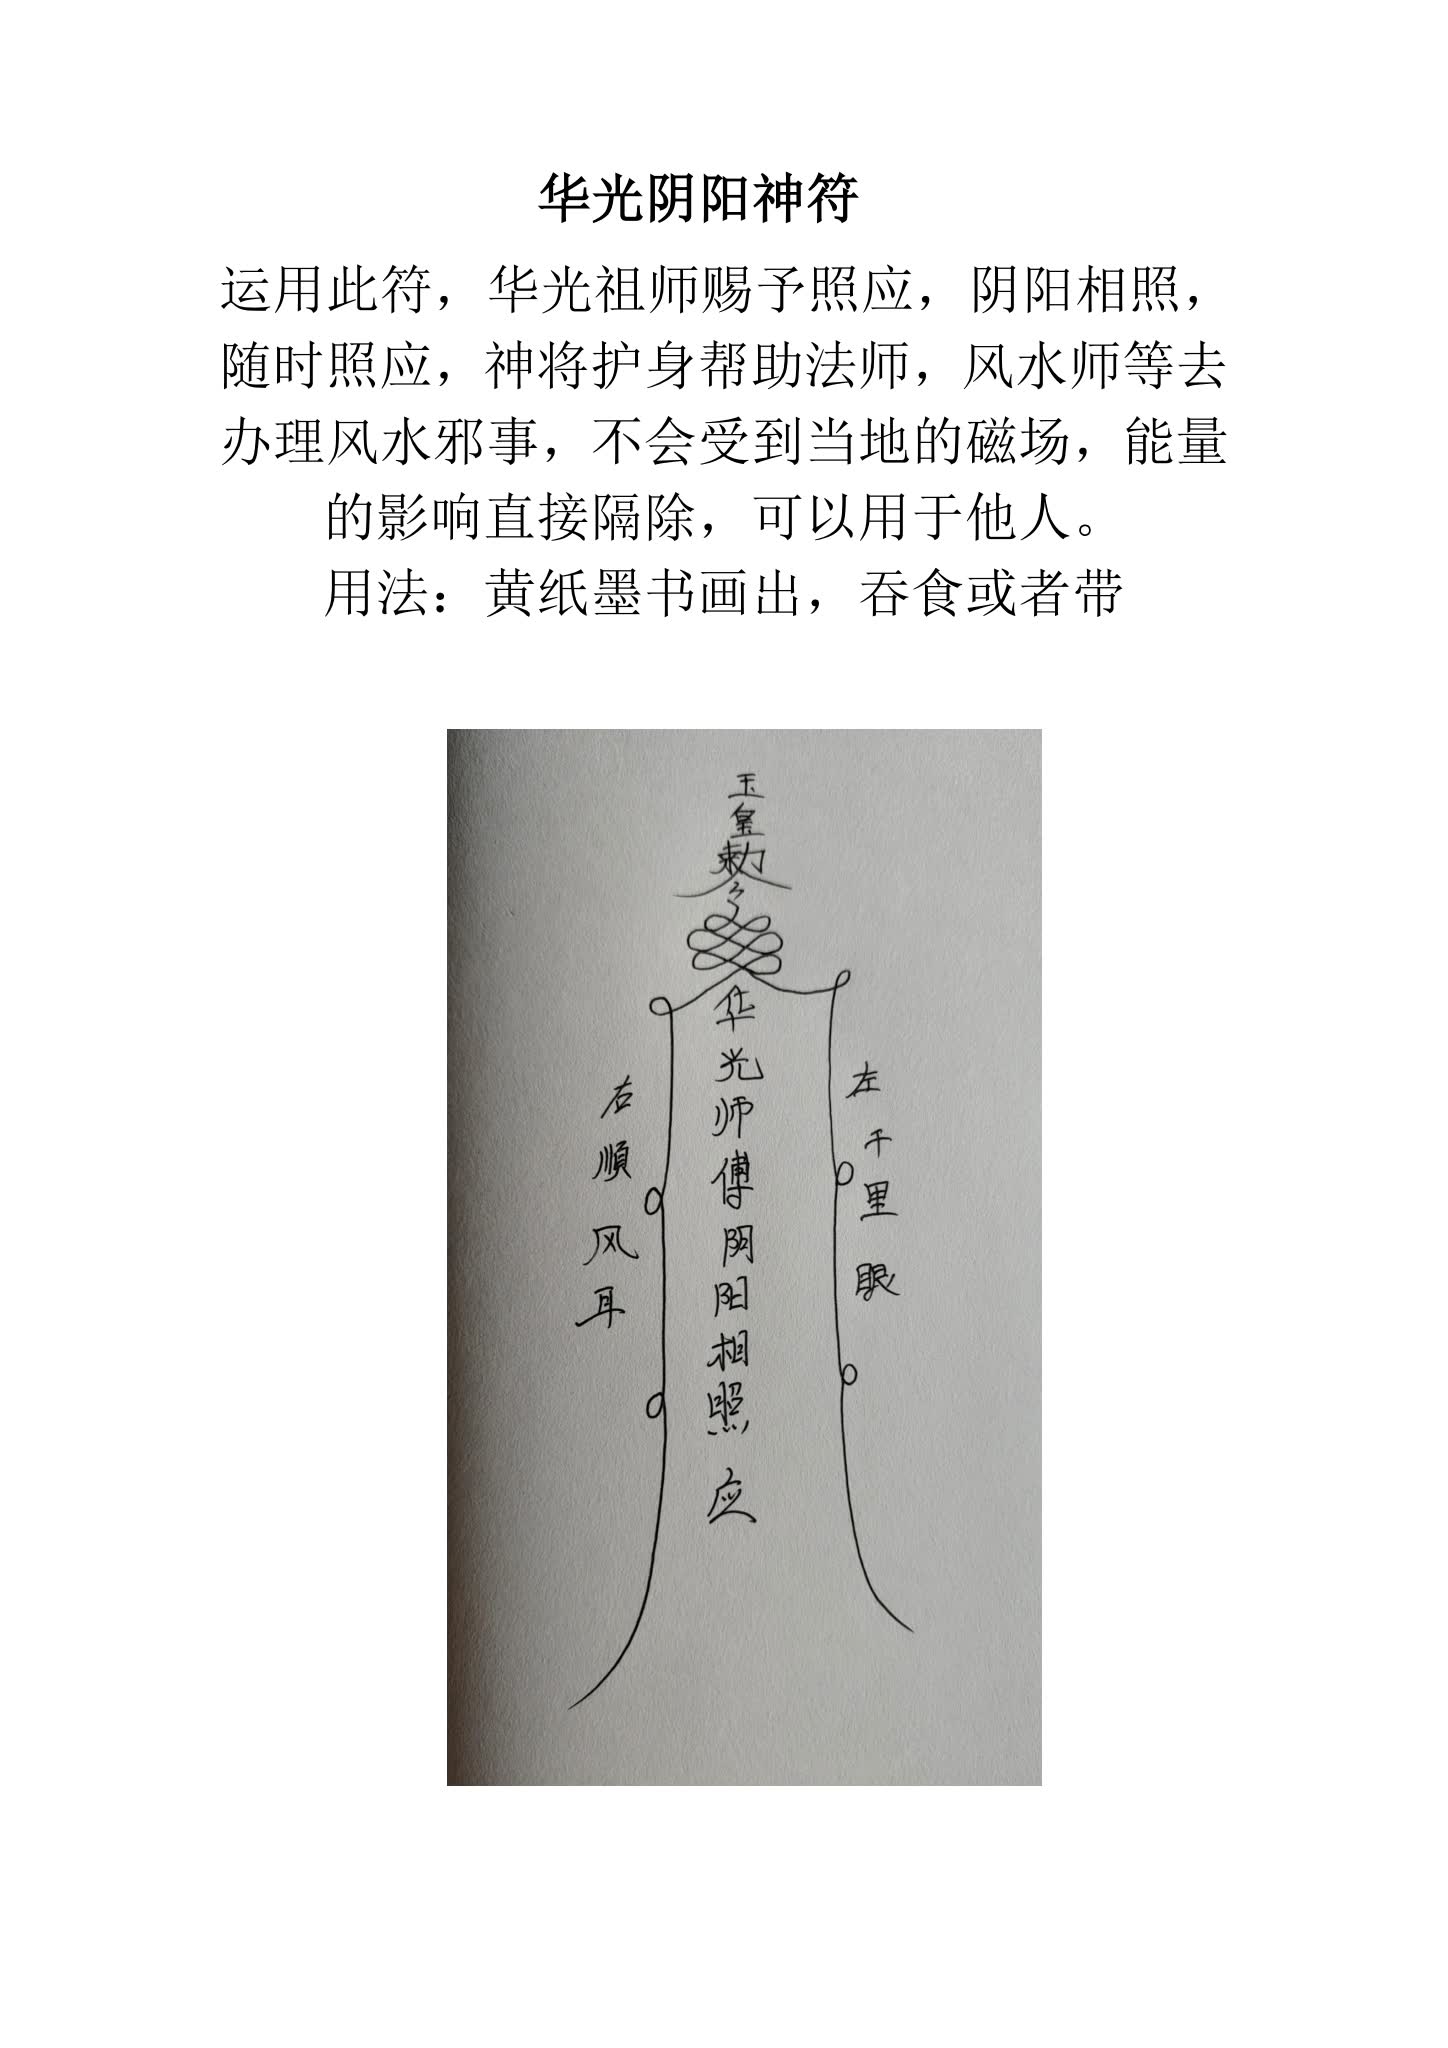 华光阴阳神符
运用此符，华光祖师赐予照应，阴阳相照，
随时照应，神将护身帮助法师，风水师等去
办理风水邪事，不会受到当地的磁场，能量
的影响直接隔除，可以用于他人。
用法：黄纸墨书画出，吞食或者带
玉皇勅令
华光师傅阴阳相照应
左千里眼
右順风耳